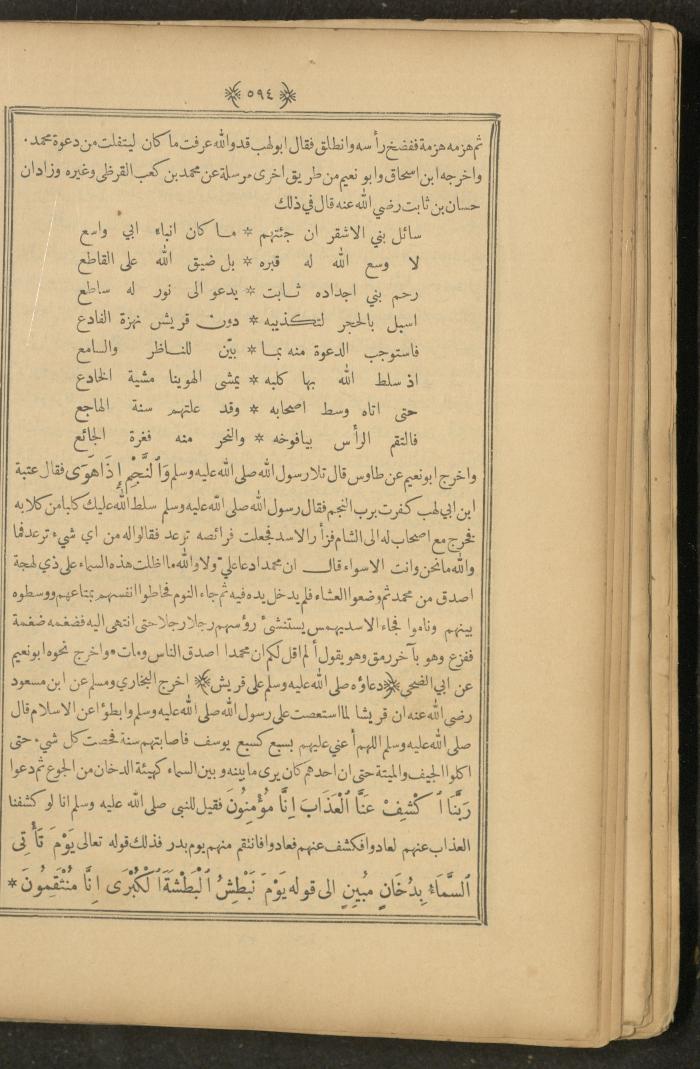 ﴿ ٥٩٤ ﴾
ثم هزمه هزمة ففضخ رأسه وانطلق فقال ابو لهب قد والله عرفت ما كان ليتفلت من دعوة محمد ٠
واخرجه ابن اسحاق وابو نعيم من طريق اخرى مرسلة عن محمد بن كعب القرظي وغيره وزاد ان
حسان بن ثابت رضي الله عنه قال في ذلك
سائل بني الاشقر ان جئتهم * ما كان انباء ابي واسع
لا وسع الله له قبره * بل ضيق الله على القاطع
رحم بني اجداده ثابت * يدعو الى نور له ساطع
اسبل بالحجر لتكذيبه * دون قريش نهزة الفادع
فاستوجب الدعوة منه بما * بيّن للناظر والسامع
اذ سلط الله بها كلبه * يمشى الهوينا مشية الخادع
حتى اتاه وسط اصحابه * وقد علتهم سنة الهاجع
فالتقم الرأس بيافوخه * والنحر منه فغرة الجائع
واخرج ابو نعيم عن طاوس قال تلا رسول الله صلى الله عليه وسلم وَٱلنَّجْمِ إِذَا هَوَى فقال عتبة
ابن ابي لهب كفرت برب النجم فقال رسول الله صلى الله عليه وسلم سلط الله عليك كلبا من كلابه
فخرج مع اصحاب له الى الشام فزأر الاسد فجعلت فرائصه ترعد فقالوا له من اي شيء ترعد فما
والله ما نحن وانت الا سواء قال ان محمدا دعا علي ولا والله ما اظلت هذه السماء على ذي لهجة
اصدق من محمد ثم وضعوا العشاء فلم يدخل يده فيه ثم جاء النوم فحاطوا انفسهم بمتاعهم ووسطوه
بينهم وناموا فجاء الاسد يهمس يستنشئ رؤسهم رجلا رجلا حتى انتهى اليه فضغمه ضغمة
ففزع وهو بآخر رمق وهو يقول ألم اقل لكم ان محمدا اصدق الناس ومات ٠ واخرج نحوه ابو نعيم
عن ابي الضحى ﴿ دعاؤه صلى الله عليه وسلم على قريش ﴾ اخرج البخاري ومسلم عن ابن مسعود
رضي الله عنه ان قريشا لما استعصت على رسول الله صلى الله عليه وسلم وابطؤا عن الاسلام قال
صلى الله عليه وسلم اللهم أعني عليهم بسبع كسبع يوسف فاصابتهم سنة فحصت كل شيء حتى
اكلوا الجيف والميتة حتى ان احدهم كان يرى ما بينه وبين السماء كهيئة الدخان من الجوع ثم دعوا
رَبَّنَا ٱكْشِفْ عَنَّا ٱلْعَذَابَ إِنَّا مُؤْمِنُونَ فقيل للنبي صلى الله عليه وسلم انا لو كشفنا
العذاب عنهم لعادوا فكشف عنهم فعادوا فانتقم منهم يوم بدر فذلك قوله تعالى يَوْمَ تَأْتِي
ٱلسَّمَاءُ بِدُخَانٍ مُبِينٍ الى قوله يَوْمَ نَبْطِشُ ٱلْبَطْشَةَ ٱلْكُبْرَى إِنَّا مُنْتَقِمُونَ *